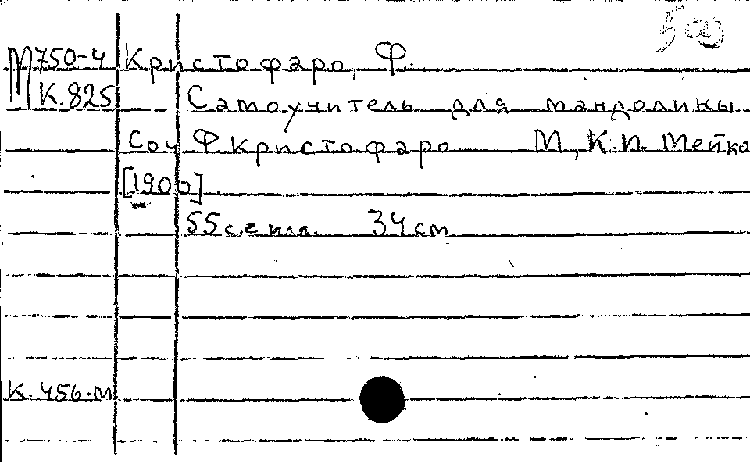 М750-4 Кристофаро, Ф.
К.825 Самоучитель для мандолины
Соч Ф Кристофаро М, К.И. Мейко
[1900]
55 34 см
К.456-М